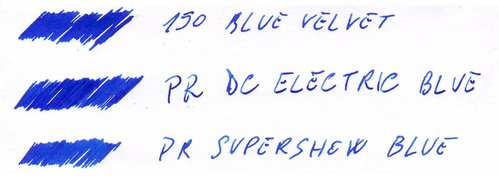 150 BLUE VELVET
PR DC ELECTRIC BLUE
PR SUPERSHOW BLUE